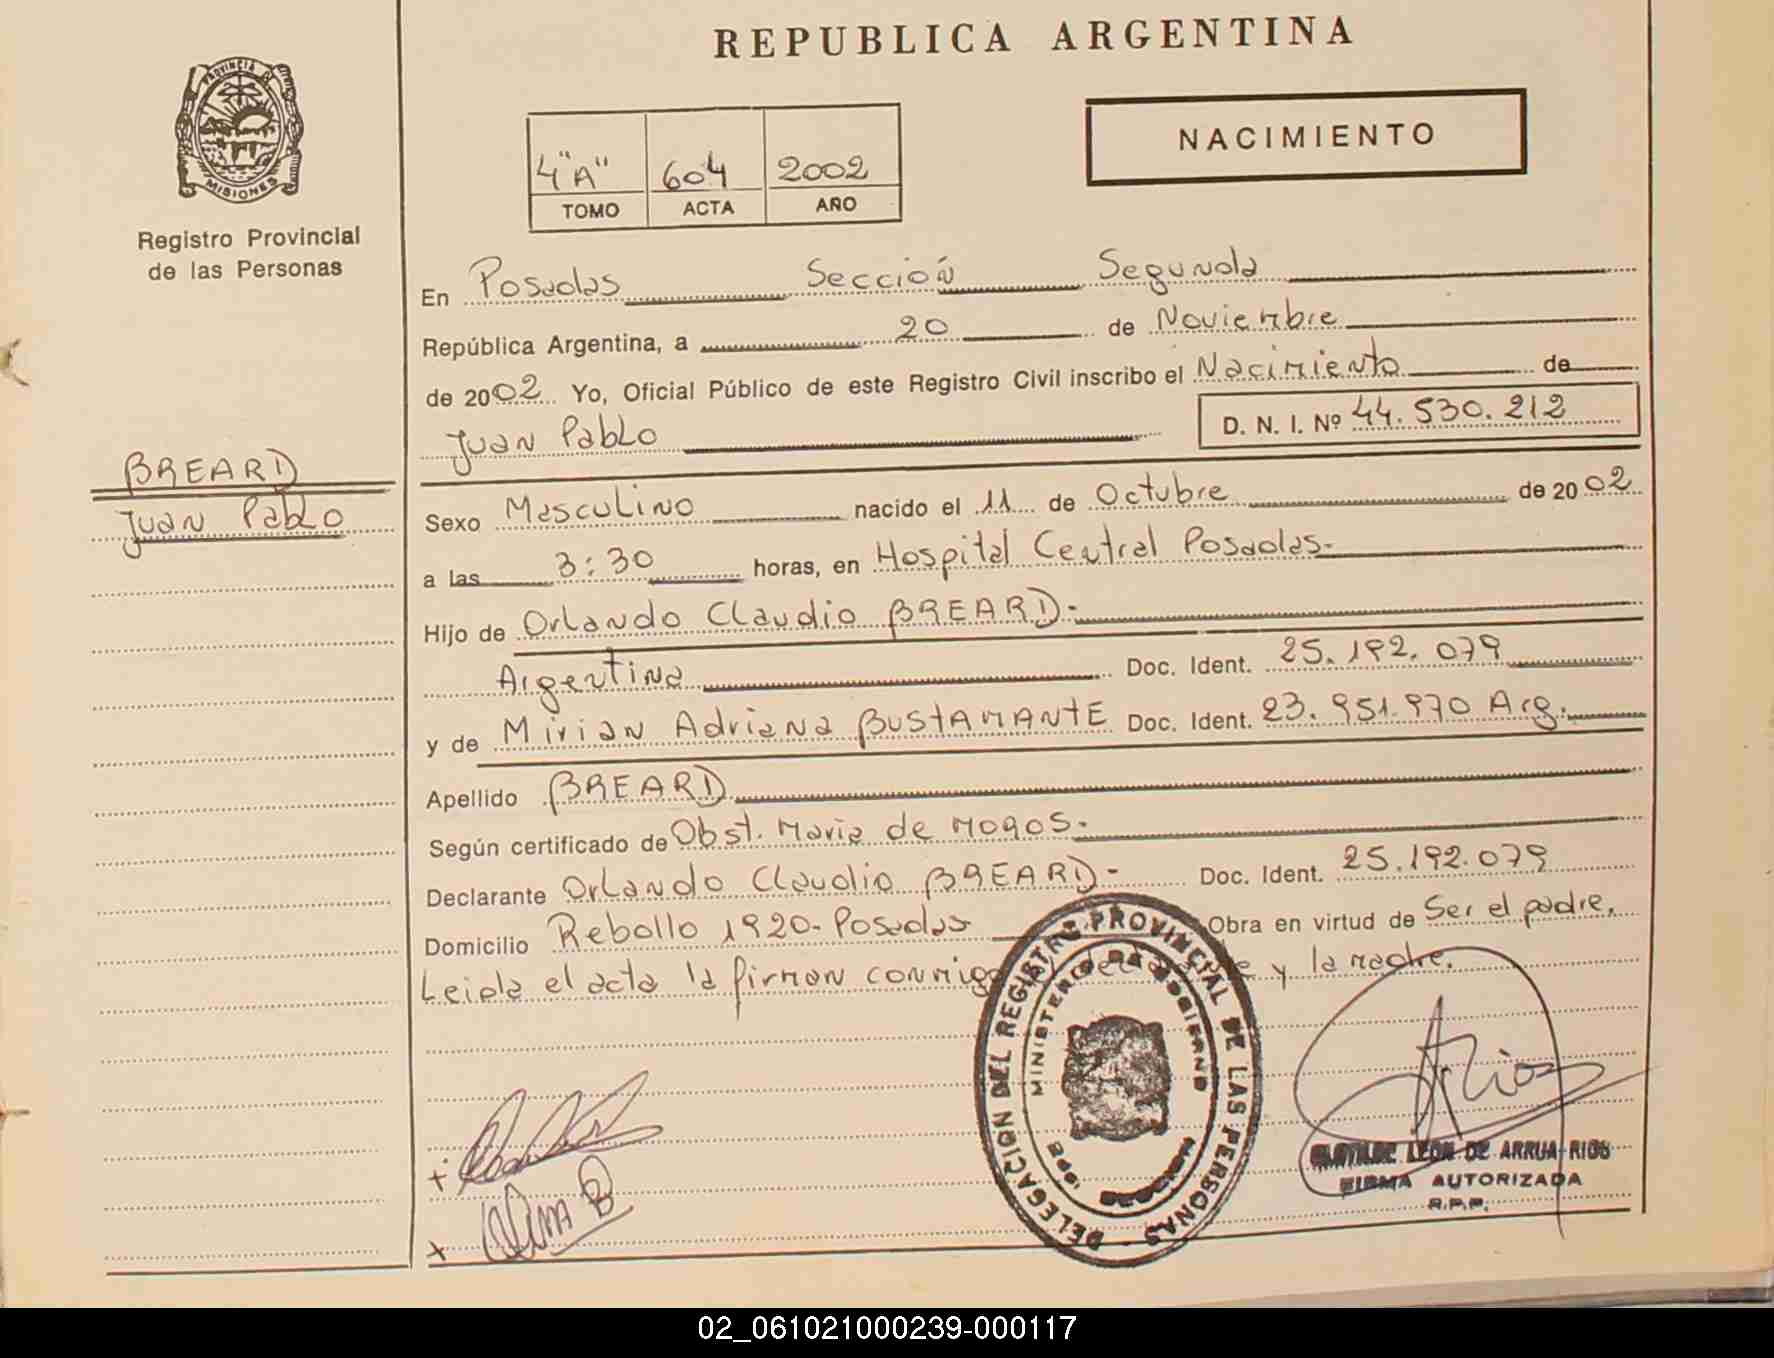 REPUBLICA ARGENTINA
PROVINCIA DE
MISIONES
Registro Provincial
de las Personas
4"A" 604 2002
TOMO ACTA AÑO
NACIMIENTO
En Posadas Sección Segunda
República Argentina, a 20 de Noviembre
de 2002 Yo, Oficial Público de este Registro Civil inscribo el Nacimiento de
Juan Pablo D. N. I. Nº 44.530.212
BREARD
Juan Pablo
Sexo Masculino nacido el 11 de Octubre de 2002
a las 3:30 horas, en Hospital Central Posadas-
Hijo de Orlando Claudio BREARD-
Argentina Doc. Ident. 25.192.079
y de Mirian Adriana BUSTAMANTE Doc. Ident. 23.951.970 Arg.
Apellido BREARD
Según certificado de Obst. Maria de
Declarante Orlando Claudio BREARD- Doc. Ident. 25.192.079
Domicilio Rebollo 1920-Posadas Obra en virtud de Ser el padre.
Leida el acta la firman conmigo el declarante y la madre.
DELEGACION DEL REGISTRO PROVINCIAL DE LAS PERSONAS
MINISTERIO DE GOBIERNO
CLOTILDE LEON DE ARRUA RIOS
FIRMA AUTORIZADA
R.P.P.
02_061021000239-000117